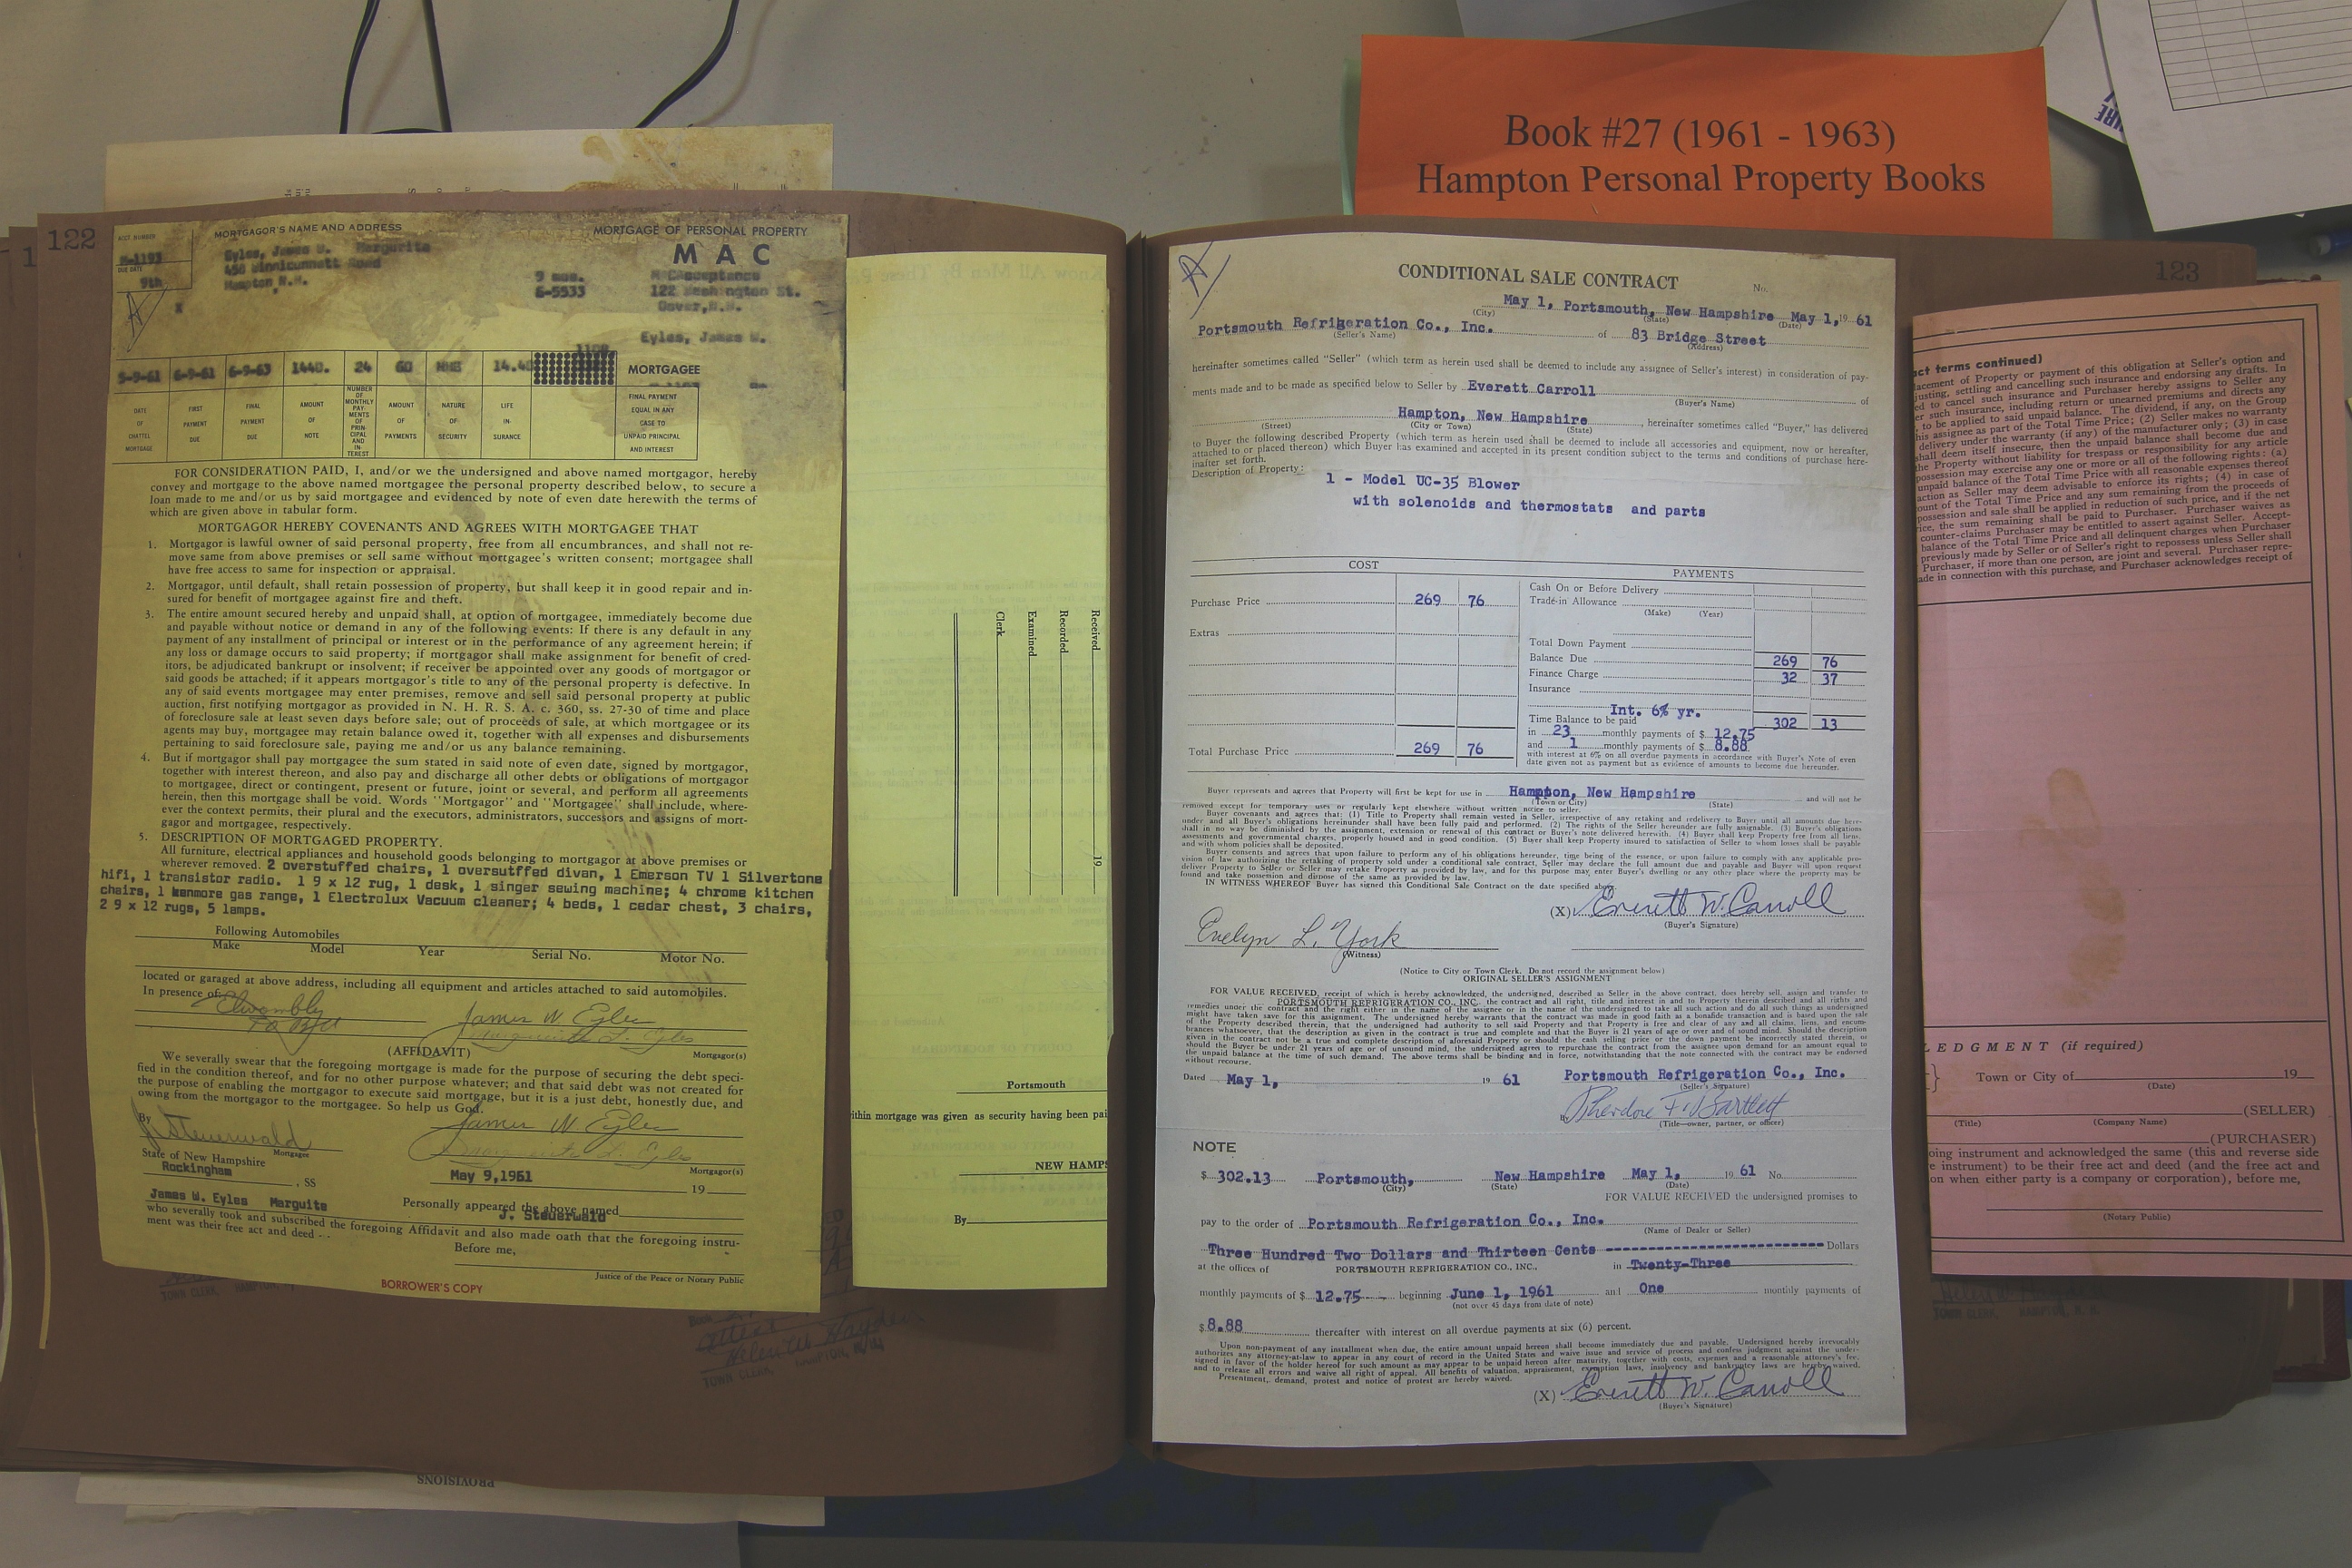 Book #27 (1961 - 1963)
Hampton Personal Property Books
122
ACCT NUMBER
M-1193
DUE DATE
9th
X
MORTGAGOR'S NAME AND ADDRESS
Eyles, James W. Margurite
450 Winnicunnett Road
Hampton N.H.
9 mos.
6-5533
MORTGAGE OF PERSONAL PROPERTY
MAC
122 Washington St.
Dover, N.H.
Eyles, James W.
5-9-61 6-9-61 6-9-63 1440. 24 60 HHG 14.40
MORTGAGEE
DATE OF CHATTEL MORTGAGE
FIRST PAYMENT DUE
FINAL PAYMENT DUE
AMOUNT OF NOTE
NUMBER OF MONTHLY PAYMENTS OF PRINCIPAL AND INTEREST
AMOUNT OF PAYMENTS
NATURE OF SECURITY
LIFE INSURANCE
FINAL PAYMENT EQUAL IN ANY CASE TO UNPAID PRINCIPAL AND INTEREST
FOR CONSIDERATION PAID, I, and/or we the undersigned and above named mortgagor, hereby
convey and mortgage to the above named mortgagee the personal property described below, to secure a
loan made to me and/or us by said mortgagee and evidenced by note of even date herewith the terms of
which are given above in tabular form.
MORTGAGOR HEREBY COVENANTS AND AGREES WITH MORTGAGEE THAT
1. Mortgagor is lawful owner of said personal property, free from all encumbrances, and shall not re-
move same from above premises or sell same without mortgagee's written consent; mortgagee shall
have free access to same for inspection or appraisal.
2. Mortgagor, until default, shall retain possession of property, but shall keep it in good repair and in-
sured for benefit of mortgagee against fire and theft.
3. The entire amount secured hereby and unpaid shall, at option of mortgagee, immediately become due
and payable without notice or demand in any of the following events: If there is any default in any
payment of any installment of principal or interest or in the performance of any agreement herein; if
any loss or damage occurs to said property; if mortgagor shall make assignment for benefit of cred-
itors, be adjudicated bankrupt or insolvent; if receiver be appointed over any goods of mortgagor or
said goods be attached; if it appears mortgagor's title to any of the personal property is defective. In
any of said events mortgagee may enter premises, remove and sell said personal property at public
auction, first notifying mortgagor as provided in N. H. R. S. A. c. 360, ss. 27-30 of time and place
of foreclosure sale at least seven days before sale; out of proceeds of sale, at which mortgagee or its
agents may buy, mortgagee may retain balance owed it, together with all expenses and disbursements
pertaining to said foreclosure sale, paying me and/or us any balance remaining.
4. But if mortgagor shall pay mortgagee the sum stated in said note of even date, signed by mortgagor,
together with interest thereon, and also pay and discharge all other debts or obligations of mortgagor
to mortgagee, direct or contingent, present or future, joint or several, and perform all agreements
herein, then this mortgage shall be void. Words "Mortgagor" and "Mortgagee" shall include, where-
ever the context permits, their plural and the executors, administrators, successors and assigns of mort-
gagor and mortgagee, respectively.
5. DESCRIPTION OF MORTGAGED PROPERTY.
All furniture, electrical appliances and household goods belonging to mortgagor at above premises or
wherever removed. 2 overstuffed chairs, 1 oversutffed divan, 1 Emerson TV 1 Silvertone
hifi, 1 transistor radio. 1 9 x 12 rug, 1 desk, 1 singer sewing machine; 4 chrome kitchen
chairs, 1 kenmore gas range, 1 Electrolux Vacuum cleaner; 4 beds, 1 cedar chest, 3 chairs,
2 9 x 12 rugs, 5 lamps.
Following Automobiles
Make Model Year Serial No. Motor No.
located or garaged at above address, including all equipment and articles attached to said automobiles.
In presence of:
James W. Eyles
Marguerite L. Eyles
Mortgagor(s)
(AFFIDAVIT)
We severally swear that the foregoing mortgage is made for the purpose of securing the debt speci-
fied in the condition thereof, and for no other purpose whatever; and that said debt was not created for
the purpose of enabling the mortgagor to execute said mortgage, but it is a just debt, honestly due, and
owing from the mortgagor to the mortgagee. So help us God.
By J Steuerwald
Mortgagee
James W Eyles
Marguerite L. Eyles
Mortgagor(s)
State of New Hampshire
Rockingham, SS
May 9,1961 19
James W. Eyles Marguite
Personally appeared the above named
J. Steuerwald
who severally took and subscribed the foregoing Affidavit and also made oath that the foregoing instru-
ment was their free act and deed - -
Before me,
Justice of the Peace or Notary Public
BORROWER'S COPY
TOWN CLERK,
Received 19
Recorded
Examined
Clerk
Portsmouth
within mortgage was given as security having been pai
NEW HAMPS
By
PROVISIONS
123
CONDITIONAL SALE CONTRACT
No.
May 1, Portsmouth, New Hampshire May 1, 19 61
(City) (State) (Date)
Portsmouth Refrigeration Co., Inc. of 83 Bridge Street
(Seller's Name) (Address)
hereinafter sometimes called "Seller" (which term as herein used shall be deemed to include any assignee of Seller's interest) in consideration of pay-
ments made and to be made as specified below to Seller by Everett Carroll of
(Buyer's Name)
Hampton, New Hampshire, hereinafter sometimes called "Buyer," has delivered
(Street) (City or Town) (State)
to Buyer the following described Property (which term as herein used shall be deemed to include all accessories and equipment, now or hereafter,
attached to or placed thereon) which Buyer has examined and accepted in its present condition subject to the terms and conditions of purchase here-
inafter set forth.
Description of Property:
1 - Model UC-35 Blower
with solenoids and thermostats and parts
COST
PAYMENTS
Purchase Price 269 76
Extras
Total Purchase Price 269 76
Cash On or Before Delivery
Trade-in Allowance
(Make) (Year)
Total Down Payment
Balance Due 269 76
Finance Charge 32 37
Insurance
Int. 6% yr.
Time Balance to be paid 302 13
in 23 monthly payments of $ 12.75
and 1 monthly payments of $ 8.88
with interest at 6% on all overdue payments in accordance with Buyer's Note of even
date given not as payment but as evidence of amounts to become due hereunder.
Buyer represents and agrees that Property will first be kept for use in Hampton, New Hampshire and will not be
(Town or City) (State)
removed except for temporary uses or regularly kept elsewhere without written notice to seller.
Buyer covenants and agrees that: (1) Title to Property shall remain vested in Seller, irrespective of any retaking and redelivery to Buyer until all amounts due here-
under and all Buyer's obligations hereinunder shall have been fully paid and performed. (2) The rights of the Seller hereunder are fully assignable. (3) Buyer's obligations
shall in no way be diminished by the assignment, extension or renewal of this contract or Buyer's note delivered herewith. (4) Buyer shall keep Property free from all liens,
assessments and governmental charges, properly housed and in good condition. (5) Buyer shall keep Property insured to satisfaction of Seller to whom losses shall be payable
and with whom policies shall be deposited.
Buyer consents and agrees that upon failure to perform any of his obligations hereunder, time being of the essence, or upon failure to comply with any applicable pro-
vision of law authorizing the retaking of property sold under a conditional sale contract, Seller may declare the full amount due and payable and Buyer will upon request
deliver Property to Seller or Seller may retake Property as provided by law, and for this purpose may enter Buyer's dwelling or any other place where the property may be
found and take possession and dispose of the same as provided by law.
IN WITNESS WHEREOF Buyer has signed this Conditional Sale Contract on the date specified above.
(X) Everett W. Carroll
(Buyer's Signature)
Evelyn L. York
(Witness)
(Notice to City or Town Clerk. Do not record the assignment below)
ORIGINAL SELLER'S ASSIGNMENT
FOR VALUE RECEIVED, receipt of which is hereby acknowledged, the undersigned, described as Seller in the above contract, does hereby sell, assign and transfer to
PORTSMOUTH REFRIGERATION CO., INC. the contract and all right, title and interest in and to Property therein described and all rights and
remedies under the contract and the right either in the name of the assignee or in the name of the undersigned to take all such action and do all such things as undersigned
might have taken save for this assignment. The undersigned hereby warrants that the contract was made in good faith as a bonafide transaction and is based upon the sale
of the Property described therein, that the undersigned had authority to sell said Property and that Property is free and clear of any and all claims, liens, and encum-
brances whatsoever, that the description as given in the contract is true and complete and that the Buyer is 21 years of age or over and of sound mind. Should the description
given in the contract not be a true and complete description of aforesaid Property or should the cash selling price or the down payment be incorrectly stated therein, or
should the Buyer be under 21 years of age or of unsound mind, the undersigned agrees to repurchase the contract from the assignee upon demand for an amount equal to
the unpaid balance at the time of such demand. The above terms shall be binding and in force, notwithstanding that the note connected with the contract may be endorsed
without recourse.
Dated May 1, 19 61
Portsmouth Refrigeration Co., Inc.
(Seller's Signature)
By Theodore F. Bartlett
(Title—owner, partner, or officer)
NOTE
$ 302.13 Portsmouth, New Hampshire May 1, 19 61 No.
(City) (State) (Date)
FOR VALUE RECEIVED the undersigned promises to
pay to the order of Portsmouth Refrigeration Co., Inc.
(Name of Dealer or Seller)
Three Hundred Two Dollars and Thirteen Cents ---------------------------- Dollars
at the offices of PORTSMOUTH REFRIGERATION CO., INC., in Twenty-Three
monthly payments of $ 12.75 -- beginning June 1, 1961 and One monthly payments of
(not over 45 days from date of note)
$8.88 thereafter with interest on all overdue payments at six (6) percent.
Upon non-payment of any installment when due, the entire amount unpaid hereon shall become immediately due and payable. Undersigned hereby irrevocably
authorizes any attorney-at-law to appear in any court of record in the United States and waive issue and service of process and confess judgment against the under-
signed in favor of the holder hereof for such amount as may appear to be unpaid hereon after maturity, together with costs, expenses and a reasonable attorney's fee,
and to release all errors and waive all right of appeal. All benefits of valuation, appraisement, exemption laws, insolvency and bankruptcy laws are hereby waived.
Presentment, demand, protest and notice of protest are hereby waived.
(X) Everett W. Carroll
(Buyer's Signature)
act terms continued)
lacement of Property or payment of this obligation at Seller's option and
justing, settling and cancelling such insurance and endorsing any drafts. In
ed to cancel such insurance and Purchaser hereby assigns to Seller any
er such insurance, including return or unearned premiums and directs any
, to be applied to said unpaid balance. The dividend, if any, on the Group
his assignee as part of the Total Time Price; (2) Seller makes no warranty
delivery under the warranty (if any) of the manufacturer only; (3) in case
shall deem itself insecure, then the unpaid balance shall become due and
the Property without liability for trespass or responsibility for any article
possession may exercise any one or more or all of the following rights: (a)
unpaid balance of the Total Time Price with all reasonable expenses thereof
action as Seller may deem advisable to enforce its rights; (4) in case of
ount of the Total Time Price and any sum remaining from the proceeds of
possession and sale shall be applied in reduction of such price, and if the net
rice, the sum remaining shall be paid to Purchaser. Purchaser waives as
counter-claims Purchaser may be entitled to assert against Seller. Accept-
balance of the Total Time Price and all delinquent charges when Purchaser
previously made by Seller or of Seller's right to repossess unless Seller shall
Purchaser, if more than one person, are joint and several. Purchaser repre-
ade in connection with this purchase, and Purchaser acknowledges receipt of
LEDGMENT (if required)
Town or City of 19
(Date)
(SELLER)
(Title) (Company Name)
(PURCHASER)
oing instrument and acknowledged the same (this and reverse side
e instrument) to be their free act and deed (and the free act and
on when either party is a company or corporation), before me,
(Notary Public)
TOWN CLERK, HAMPTON, N. H.